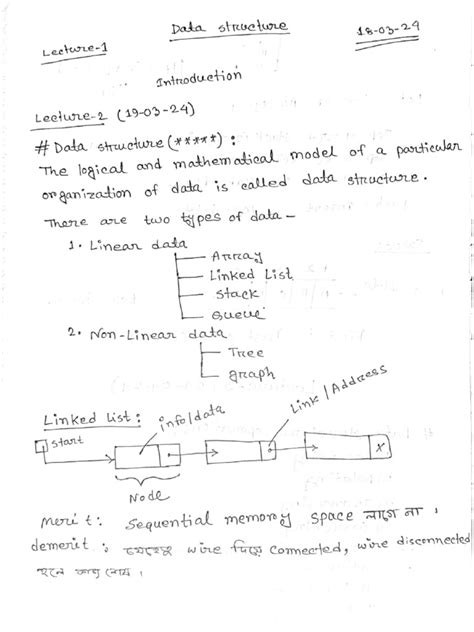 Data structure
18-03-24
Lecture-1
Introduction
Lecture-2 (19-03-24)
# Data structure (*****) :
The logical and mathematical model of a particular
organization of data is called data structure.
There are two types of data -
1. Linear data
Array
Linked List
Stack
Queue
2. Non-Linear data
Tree
graph
Linked list:
info/data
Link/Address
start
X
Node
Merit: Sequential memory space লাগে না।
demerit: যেহেতু wire দিয়ে connected, wire disconnected
হলে